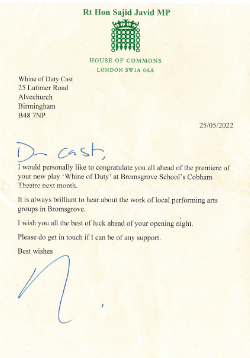 Rt Hon Sajid Javid MP
HOUSE OF COMMONS
LONDON SW1A 0AA
Whine of Duty Cast
25 Latimer Road
Alvechurch
Birmingham
B48 7NP
25/05/2022
Dr Cast,
I would personally like to congratulate you all ahead of the premiere of
your new play 'Whine of Duty' at Bromsgrove School's Cobham
Theatre next month.
It is always brilliant to hear about the work of local performing arts
groups in Bromsgrove.
I wish you all the best of luck ahead of your opening night.
Please do get in touch if I can be of any support.
Best wishes